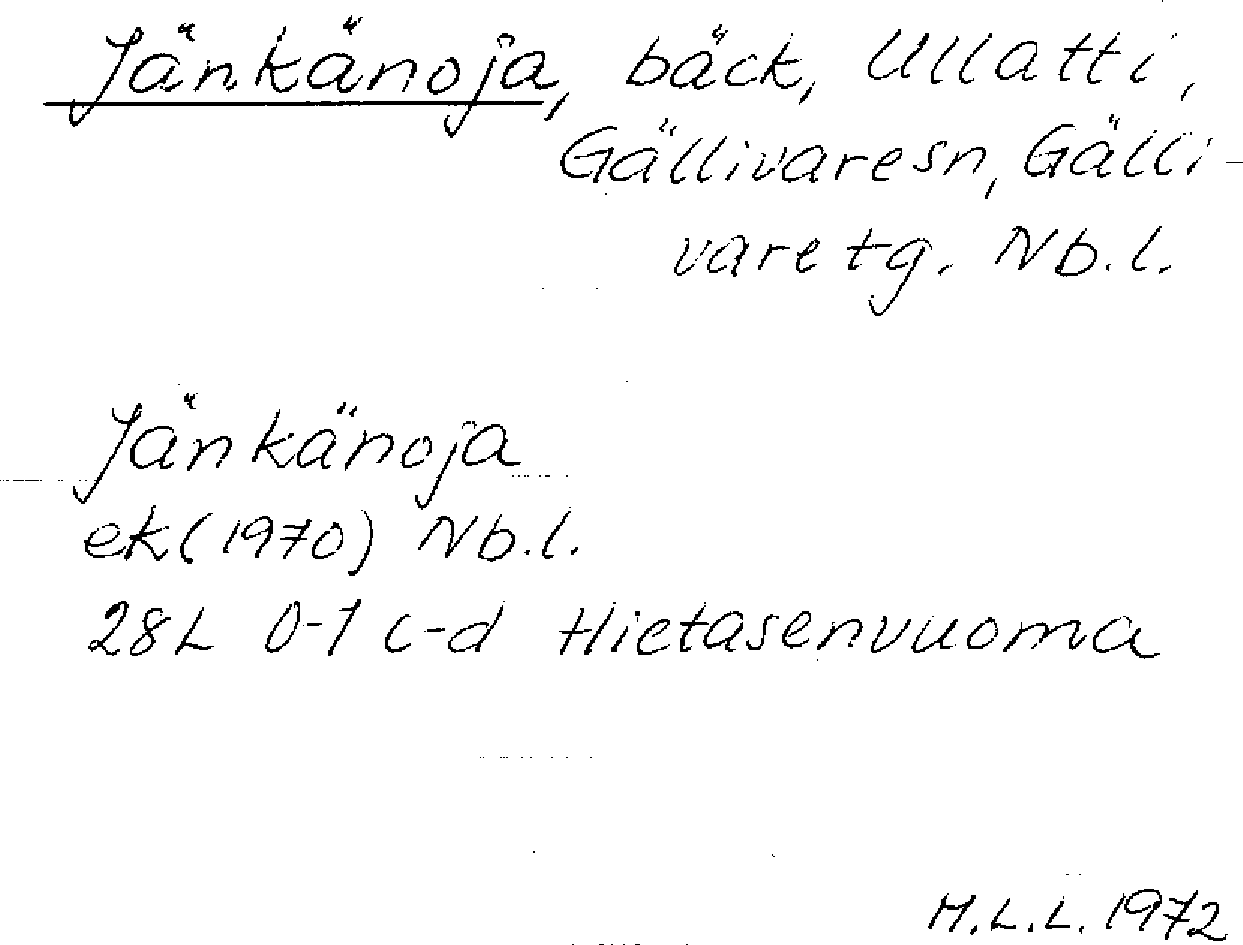 Jänkänoja, bäck, Ullatti,
Gällivare sn, Gälli-
vare tg. Nb.l.
Jänkänoja
ek (1970) Nb.l.
28L 0-1 c-d Hietasenvuoma
M.L.L. 1972